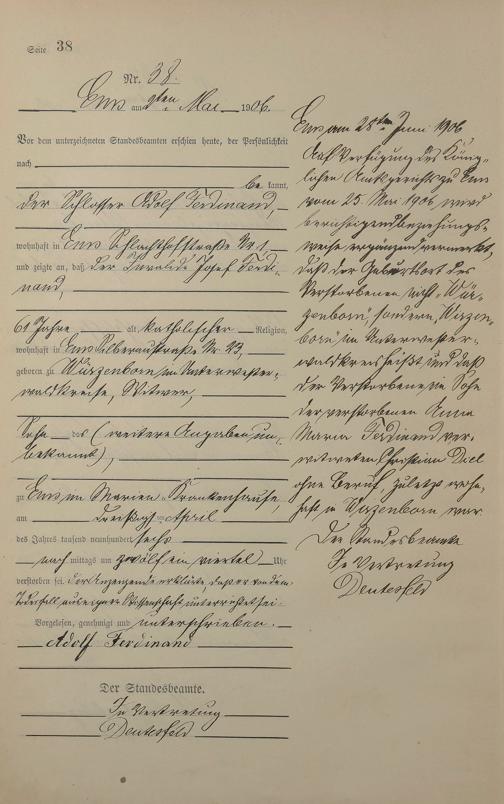 Seite 38
Nr. 38.
Ems am 2ten Mai 1906.
Vor dem unterzeichneten Standesbeamten erschien heute, der Persönlichkeit
nach
be kannt,
der Schlosser Adolf Ferdinand,
wohnhaft in Ems Schlachthofstraße Nr 1,
und zeigte an, daß der Invalide Josef Ferdi-
nand,
61 Jahre alt, katholischer Religion,
wohnhaft in Ems Silberaustraße Nr 13,
geboren zu Würzenborn im Unterwester-
waldkreise, Witwer,
Sohn des (weitere Angaben un-
bekannt),
zu Ems im Marien-Krankenhause,
am dreißigsten April
des Jahres tausend neunhundert sechs
nach mittags um zwölf ein viertel Uhr
verstorben sei. Der Anzeigende erklärte, daß er von dem
Todesfall aus eigener Wissenschaft unterrichtet sei.
Vorgelesen, genehmigt und unterschrieben.
Adolf Ferdinand
Der Standesbeamte.
In Vertretung
Ems am 28ten Juni 1906
Auf Verfügung des König-
lichen Amtsgerichts zu Ems
vom 25. Mai 1906 wird
berichtigend beziehungs-
weise ergänzend vermerkt,
daß der Geburtsort des
Verstorbenen nicht "Wür-
zenborn", sondern "Wirzen-
born" im Unterwester-
waldkreis heißt, und daß
der Verstorbene ein Sohn
der verstorbenen Anna
Maria Ferdinand ver-
witweten Christian
ohne Beruf, zuletzt wohn-
haft in Wirzenborn war
Der Standesbeamte
In Vertretung